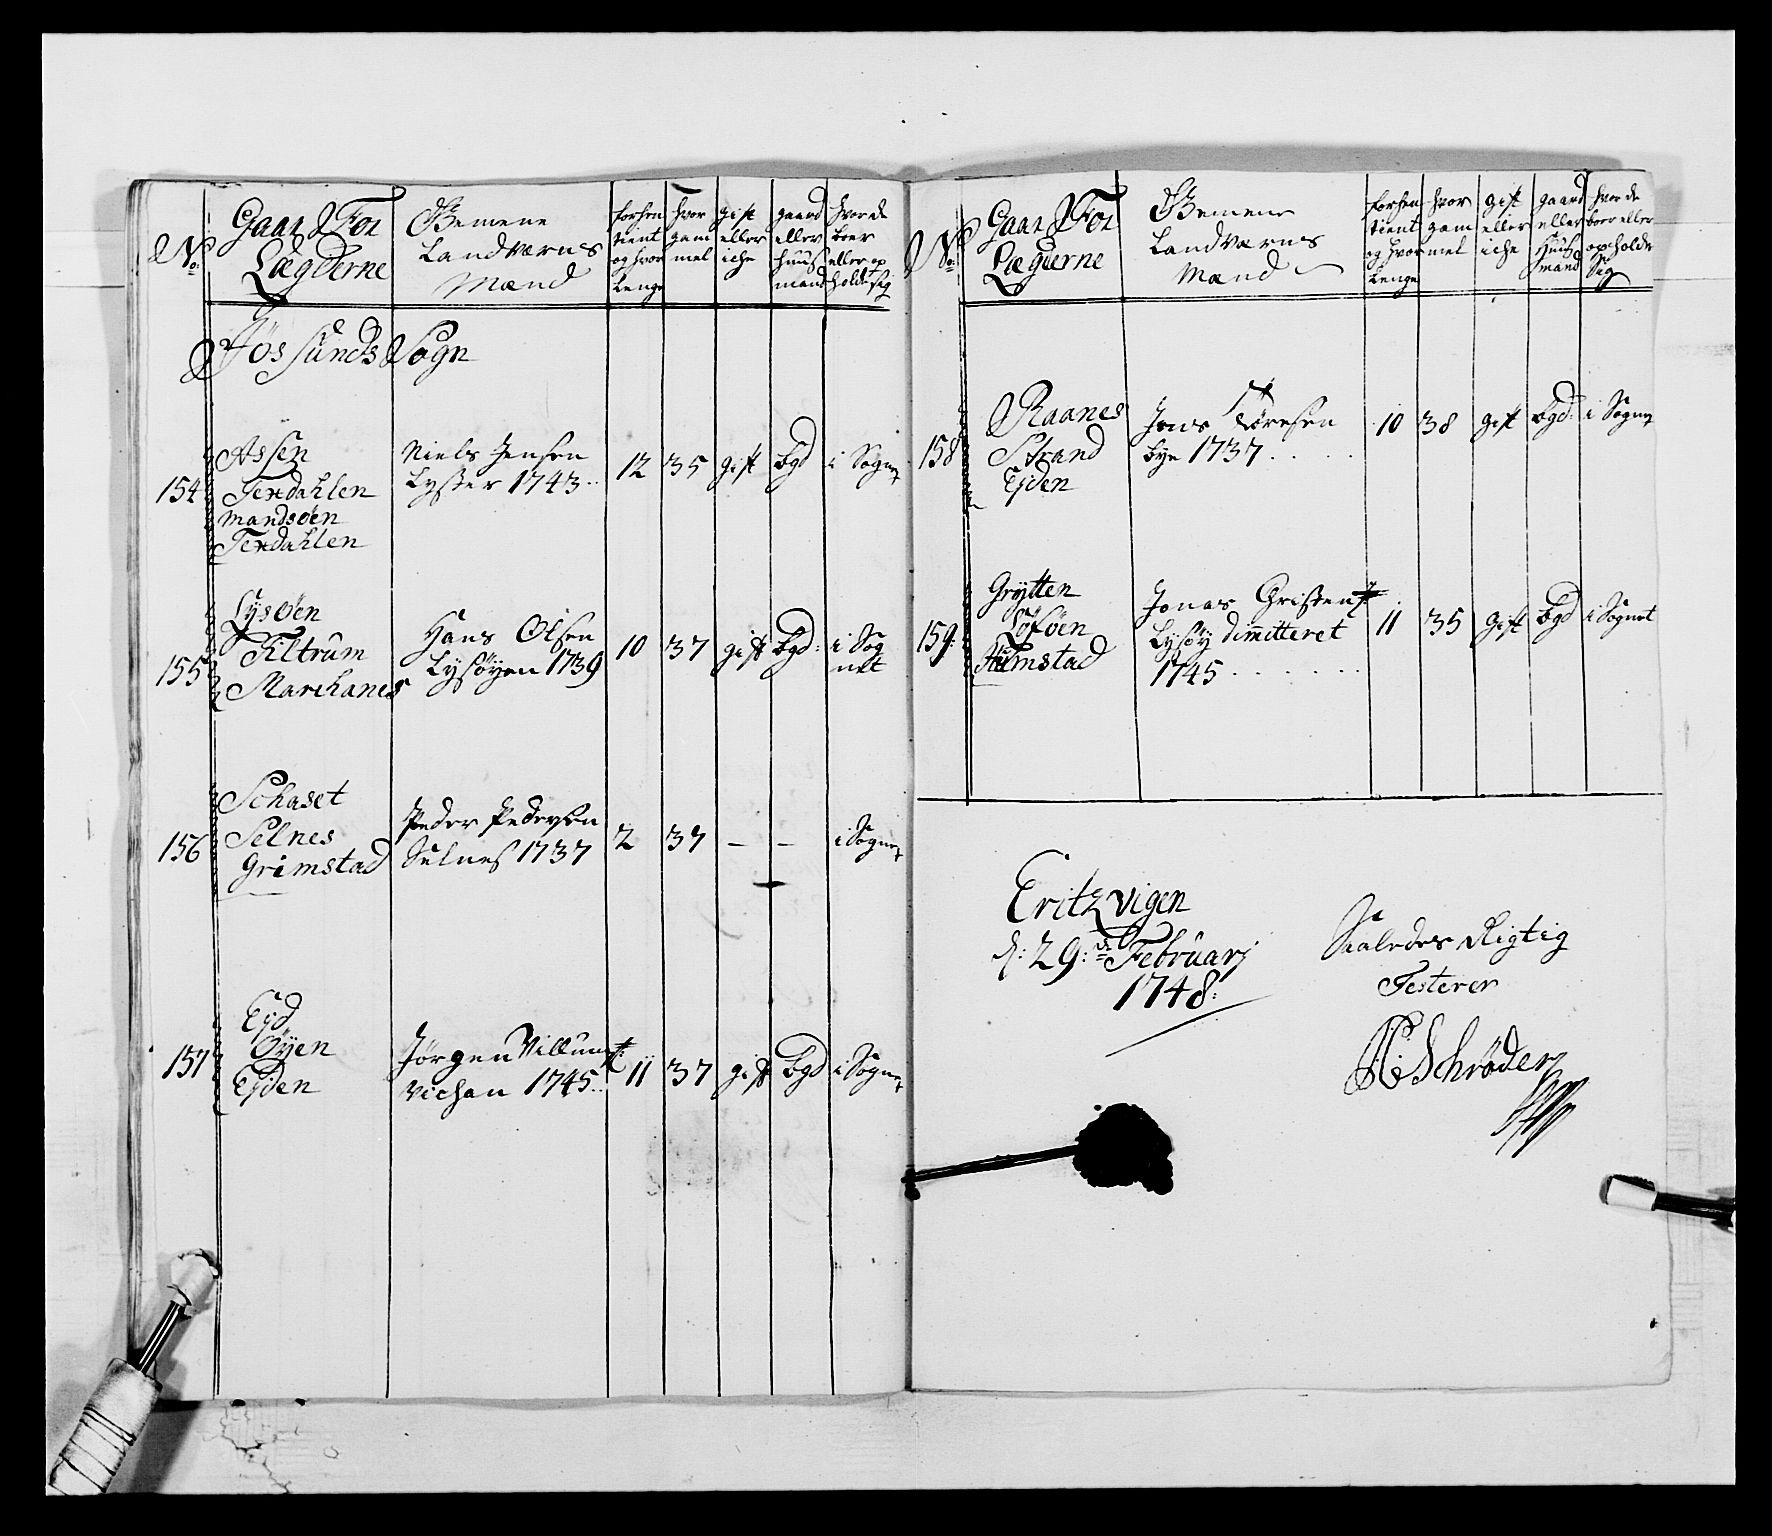 No:
Gaard For
Lægderne
Gemene
Landværns
Mænd
forhen
tient
og hvor
Lenge
hvor
gam
mel
gift
eller
iche
gaard
eller
huus
mand
hvor de
boer
eller op
holde sig
Jössunds Sogn
154
Assen
Terdahlen
mandsøen
Terdahlen
Niels Jensen
Lysøer 1743
12
35
gift
bgd
i Sognet
155
Lysøen
Tiltrum
Marchanes
Hans Olsen
Lysøyen 1739
10
37
gift
bgd:
i Sog
net
156
Schaset
Selnes
Grimstad
Peder Pedersen
Selnes 1737
2
37
–
–
i Sognet
157
Eyd
Öyen
Ejden
Jörgen Villums:
Vichan 1745
11
37
gift
bgd
i Sognet
No:
Gaard For
Lægderne
Gemene
Landværns
Mænd
forhen
tient
og hvor
Lenge
hvor
gam
mel
gift
eller
iche
gaard
eller
huus
mand
hvor de
boer eller
opholder
Sig
158
Raanes
Strand
Ejden
Jens Toresen
bye 1737
10
38
gift
bgd:
i Sognet
159:
Grytten
Lofsöen
Humstad
Jonas Christens:
Lysöy dimitteret
1745
11
35
gift
bgd
i Sognet
Eritzvigen
d: 29:de Februarj
1748:
Saaledes Rigtig
Testerer
Schrøder